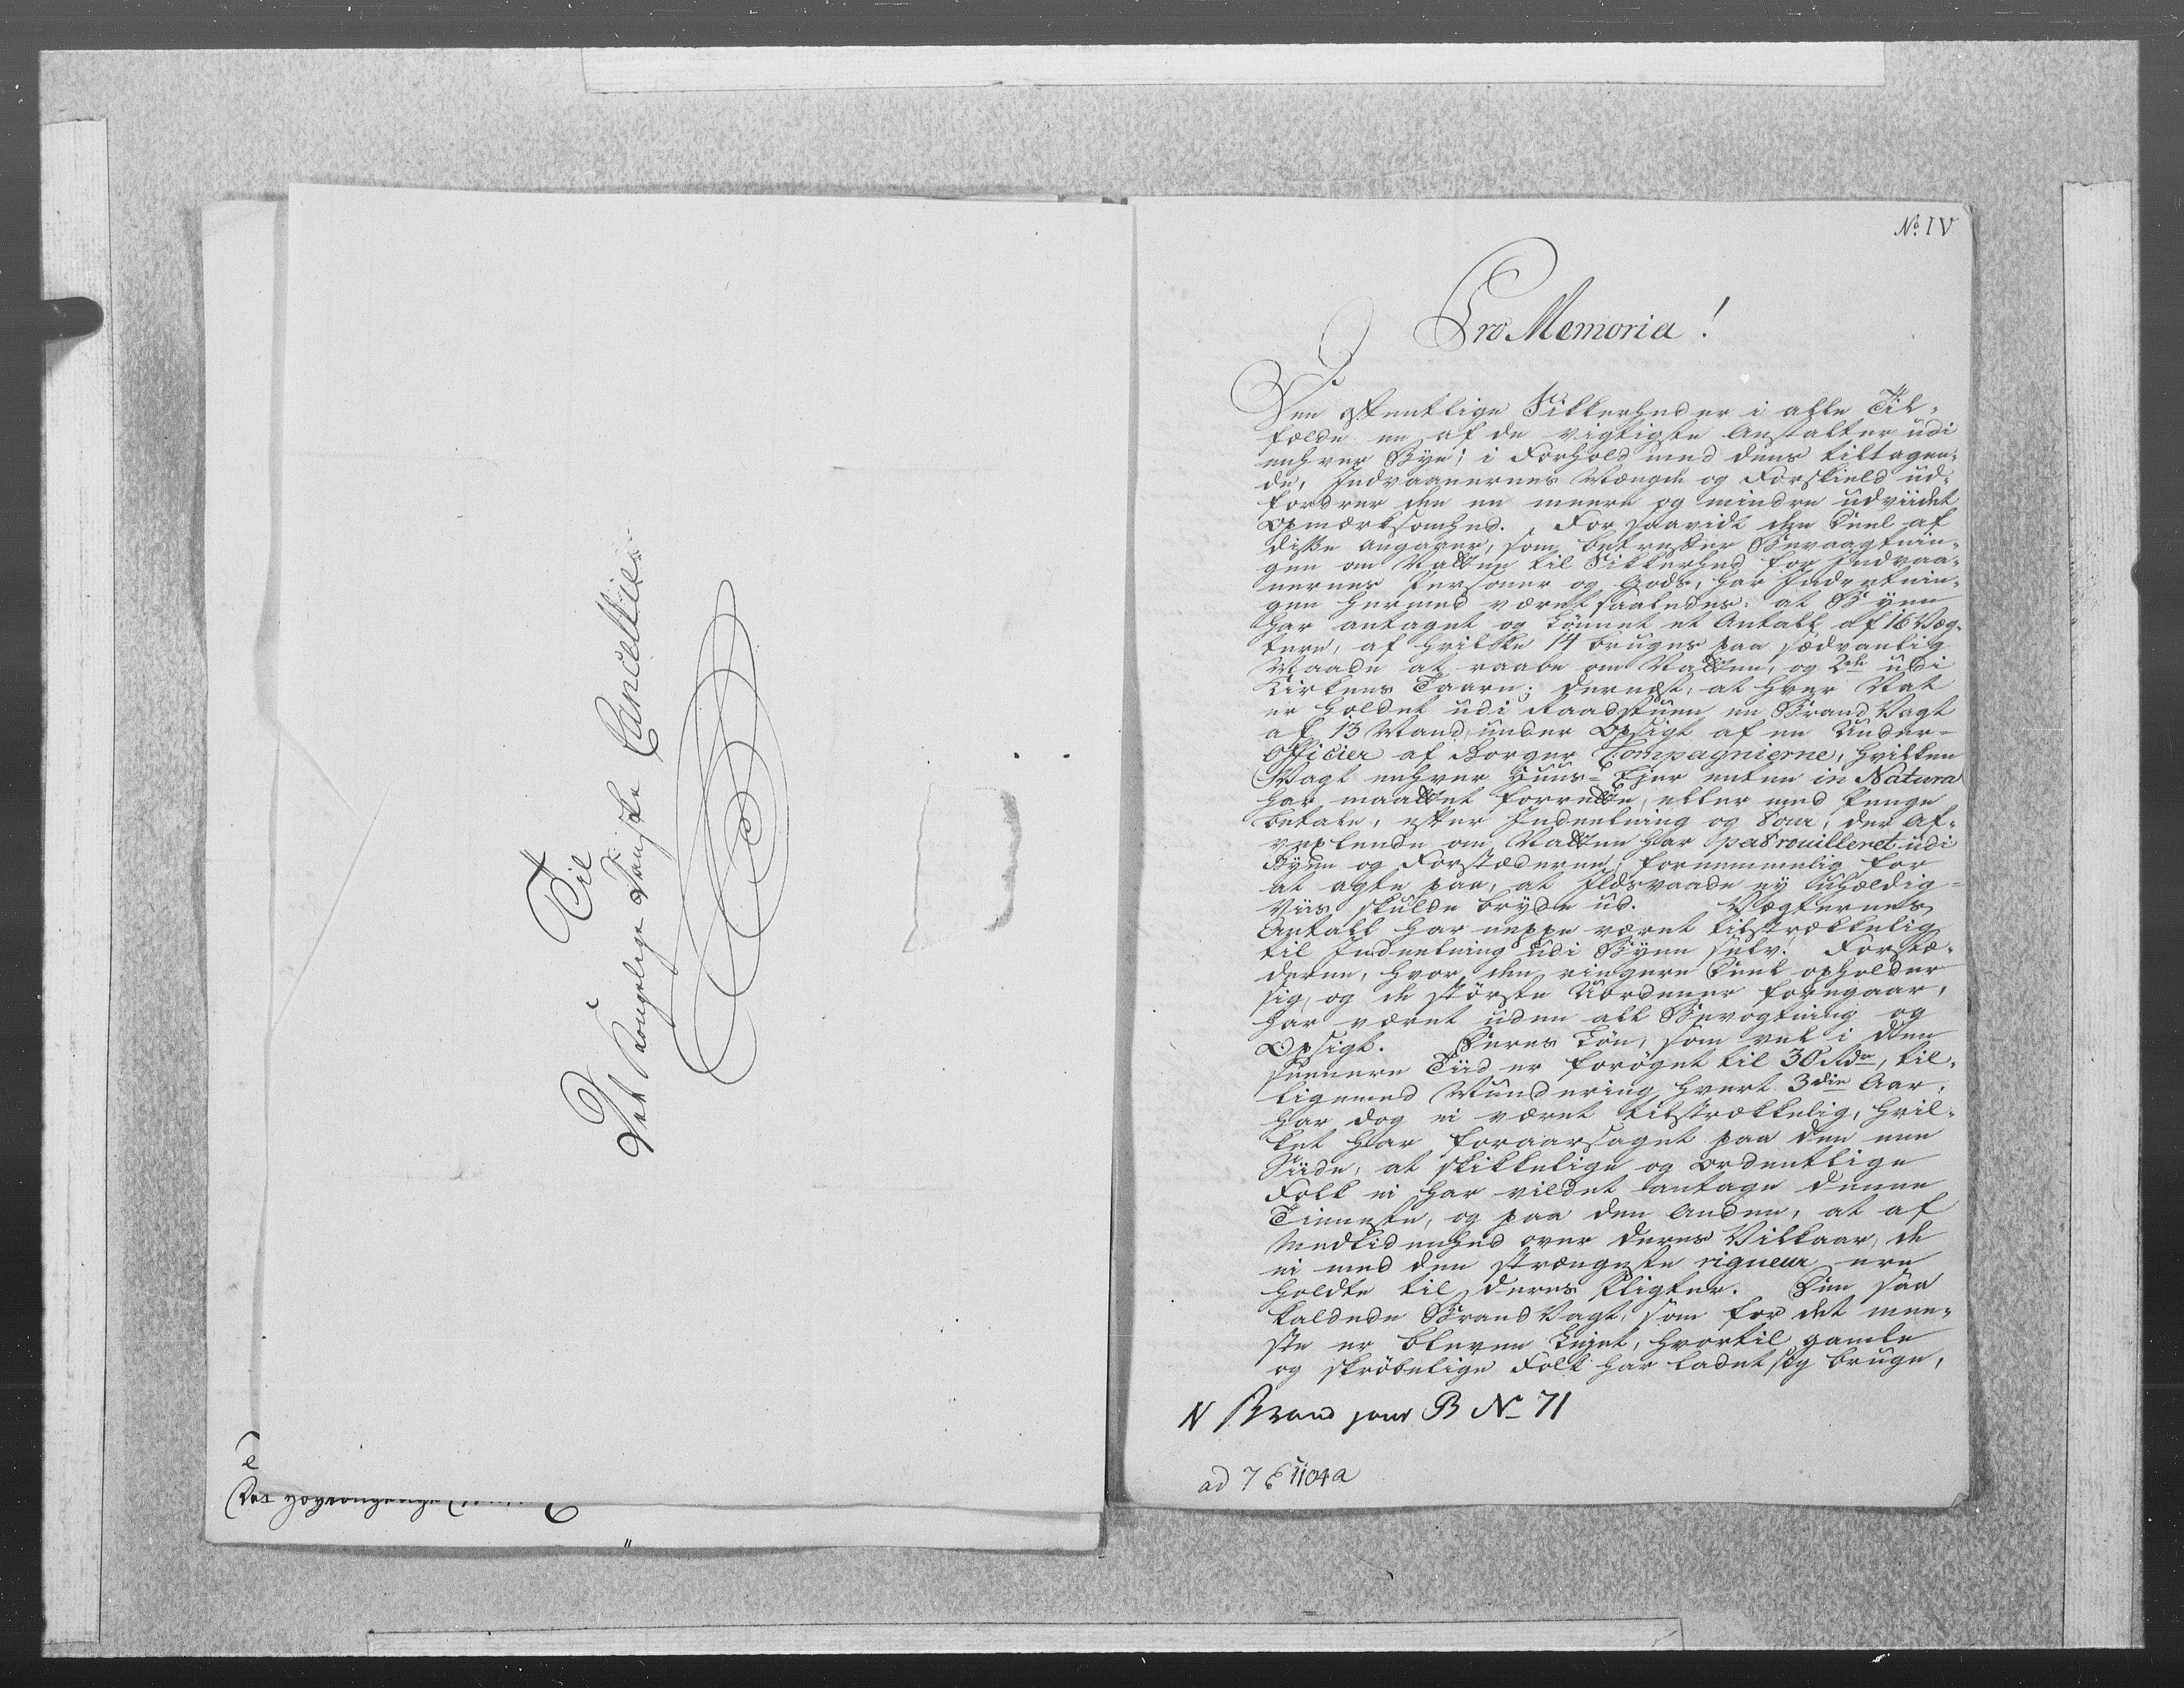 Til
Det Kongelige Danske Cancellie
No. IV
Pro Memoria!
Den offentlige Sikkerhed er i alle Til-
fælde en af de vigtigste Anstalter udi
enhver Bye; i Forhold med dens tiltagen-
de, Indvaanernes Mængde og Forskield ud-
fordrer den en meere og mindre udviidet
Opmærksomhed. For saavidt den Deel af
disse angaaer, som betreffer Bevaagtnin-
gen om Natten til Sikkerhed for Indvaa-
nernes Personer og Gods, har Indretnin-
gen hermed været saaledes: at Byen
har antaget og lønnet et Antall af 16 Væg-
tere, af hvilke 14 bruges paa sædvanlig
Maade at raabe om Natten, og 2de udi
Kirkens Taarn; dernest, at hver Nat
er holdet udi Raadstuen en Brand Vagt
af 13 Mand, under Opsigt af en Under-
Officier af Borger Compagnierne, hvilken
Vagt enhver Huus-Ejer enten in Natura
har maattet forrette, eller med Penge
betale, efter Indeelning og Tour, der af-
vexlende om Natten har patrouilleret udi
Byen og Forstæderne, fornemmelig for
at agte paa, at Ildsvaade ey uheldig-
Viis skulde bryde ud. Vægternes
Antall har neppe været tilstrækkelig
til Indeelning udi Byen selv. Forstæ-
derne, hvor den ringere Deel opholder
sig, og de største Uordener foregaar,
har været uden all Bevogtning og
Opsigt. Deres Løn, som vel i den
seenere Tiid er forøget til 30 Rdr, til-
ligemed Mundering hvert 3die Aar,
har dog ei været tilstrækkelig, hvil-
ket har foraarsaget paa den eene
Siide, at skikkelige og ordentlige
Folk ei har vildet antage denne
Tieneste, og paa den Anden, at af
Medlidenhed over deres Vilkaar, de
ei med den strængeste rigueur ere
holdte til deres Pligter. Den saa
kaldede Brand Vagt, som for det mee-
ste er bleven Lejet, hvortil gamle
og skrøbelige Folk har ladet sig bruge,
N Brand jour B No 71
ad 7 1104a